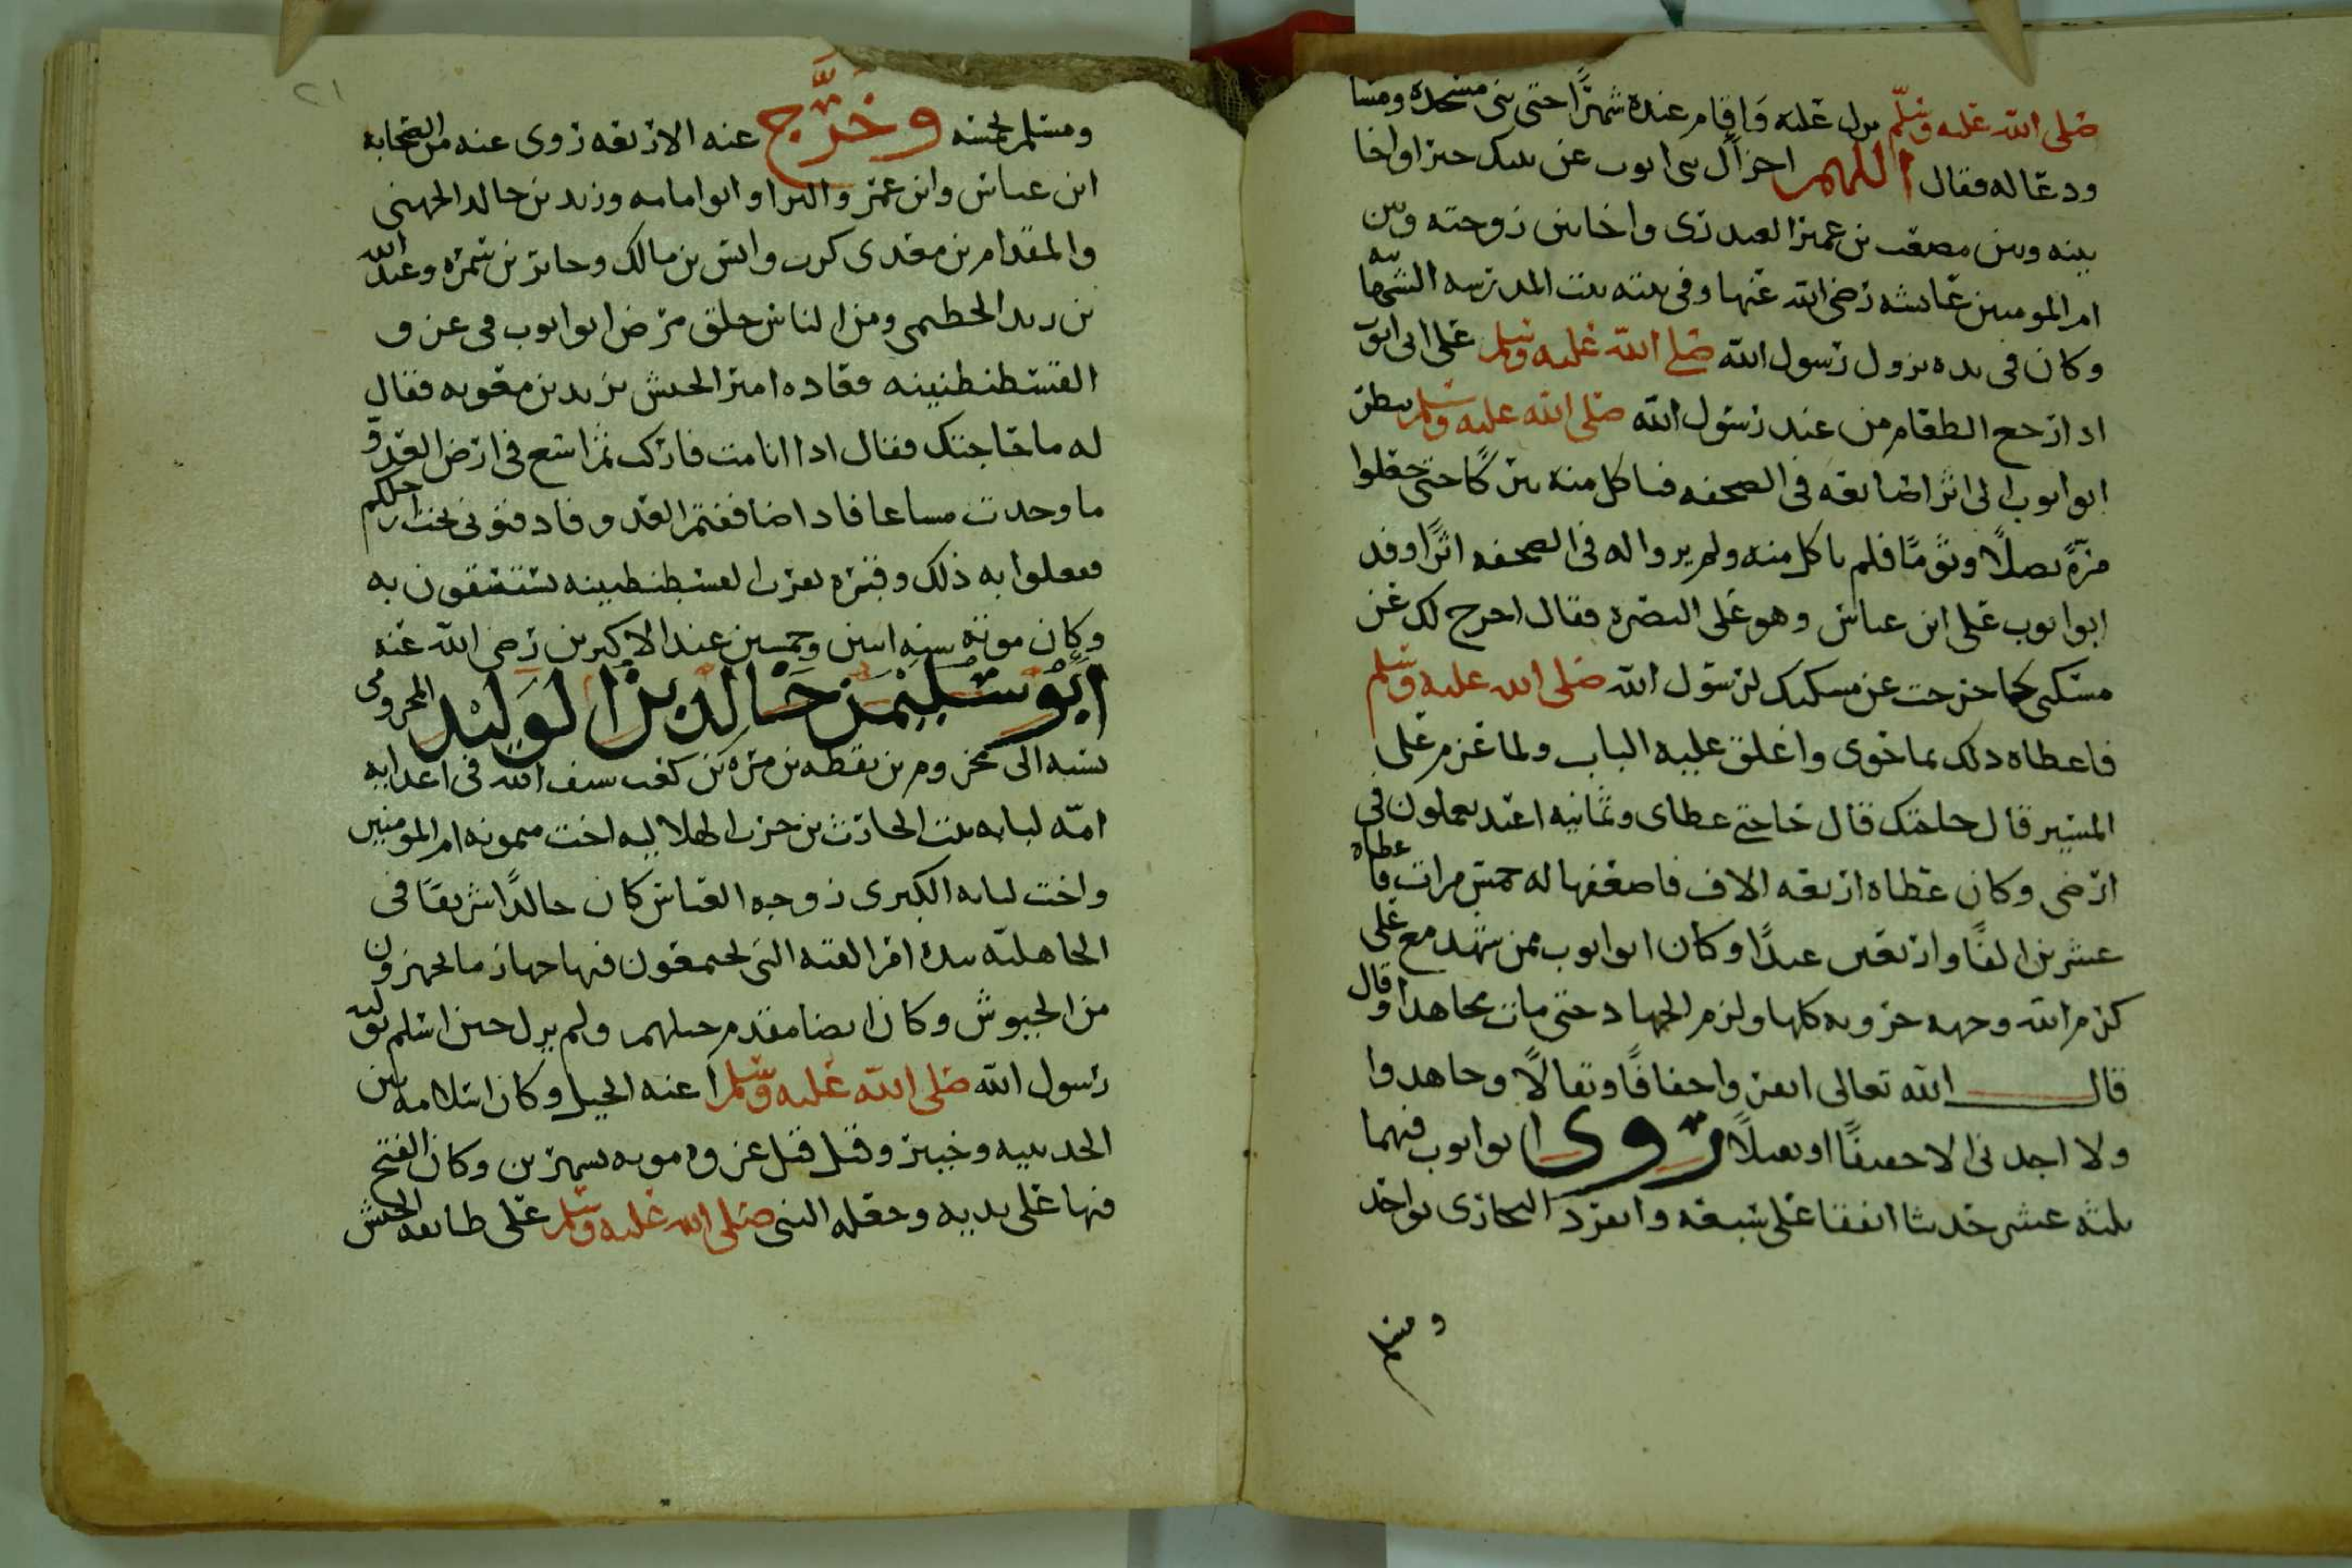 صلى الله عليه وسلم نزل عليه واقام عنده شهرًا حتى بنى مسجده ومسا
ودعا له فقال اللهم اجز ال بى ايوب عن نبيك خيرا واخا
بينه وبين مصعب بن عمير العبدرى واخا بين زوجته وبين
ام المومنين عايشه رضى الله عنها وفى بيته بنت المدرسه الشهابيه
وكان فى بده نزول رسول الله صلى الله عليه وسلم على ابى ايوب
اذا رجع الطعام من عند رسول الله صلى الله عليه وسلم ينظر
ابو ايوب الى اثر اصابعه فى الصحفه فياكل منه تبركًا حتى جعلوا
مرّةً بصلًا وثومًا فلم ياكل منه ولم يروا له فى الصحفه اثرًا وفد
ابو ايوب على ابن عباس وهو على البصره فقال اخرج لك عن
مسكنى كما خرجت عن مسكنك لرسول الله صلى الله عليه وسلم
فاعطاه ذلك بما حوى واغلق عليه الباب ولما عزم على
المسير قال حاجتك قال حاجتى عطاى وثمانيه اعبد يعملون فى
ارضى وكان عطاه اربعه الاف فاضعفها له خمس مرات فاعطاه
عشرين الفًا واربعين عبدًا وكان ابو ايوب ممن شهد مع على
كرم الله وجهه حروبه كلها ولزم الجهاد حتى مات مجاهدا وقال
قال الله تعالى انفروا خفافًا وثقالًا وجاهدوا
ولا اجدنى الا خفيفًا او ثقيلًا روى ابو ايوب فيهما
ثلثه عشر حديثا اتفقا على سبعه وانفرد البخارى بواحد
ومسلم
٢١
ومسلم بخمسه وخَرَّج عنه الاربعه روى عنه من الصحابه
ابن عباس وابن عمر والبرا وابو امامه وزيد بن خالد الجهنى
والمقدام بن معدى كرب وانس بن مالك وجابر بن سمره وعبد الله
بن يزيد الخطمى ومن الناس خلق مرض ابو ايوب فى غزو
القسطنطنينه فعاده امير الجيش يزيد بن معويه فقال
له ما حاجتك فقال اذا انا مت فاركب ثم اسع فى ارض العدو
ما وجدت مساغا فاذا ضاففتم العدو فادفنونى تحت ارجلكم
ففعلوا به ذلك وقبره بقرب القسطنطينه يستسقون به
وكان موته سنه اثنين وخمسين عند الاكبرين رضى الله عنه
ابو سليمن خالد بن الوليد المخزومى
نسبه الى مخزوم بن يقظه بن مره بن كعب سيف الله فى اعدايه
امّه لبابه بنت الحارث بن حزن الهلاليه اخت ميمونه ام المومنين
واخت لبابه الكبرى زوجه العباس كان خالدًا شريفًا فى
الجاهليّه بيده امر القبه التى يجتمعون فيها جهاز ما يجهزون
من الجيوش وكان ايضا مقدم خيلهم ولم يزل حين اسلم يوليه
رسول الله صلى الله عليه وسلم اعنه الخيل وكان اسلامه بين
الحديبيه وخيبر وقيل قبل غزوه موته بشهرين وكان الفتح
فيها على يديه وجعله النبى صلى الله عليه وسلم على طايفه الجيش